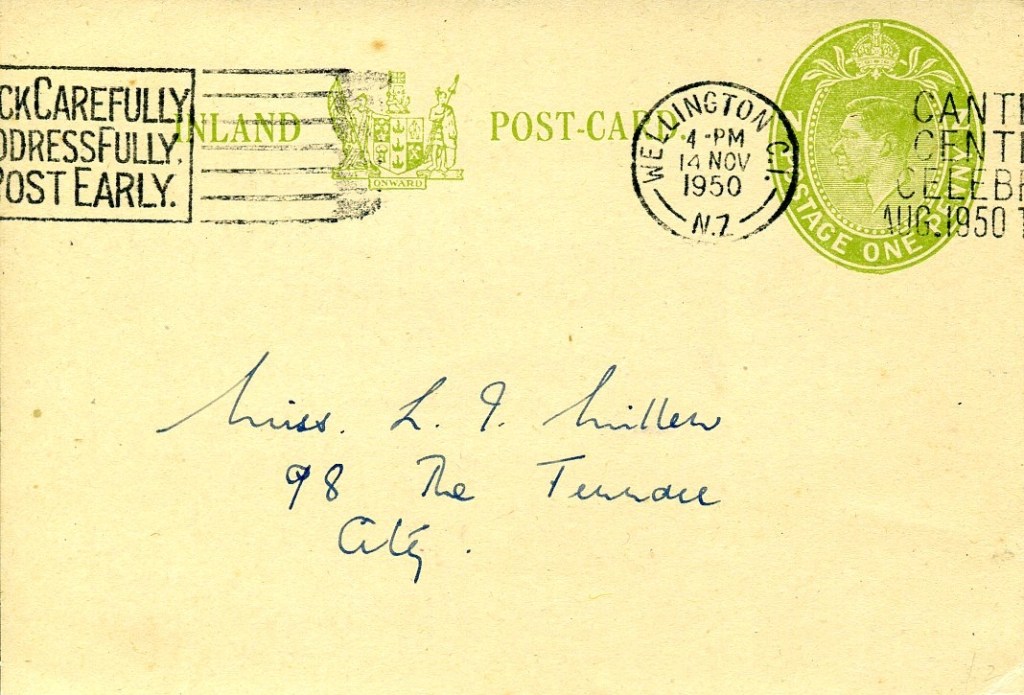 CKCAREFULLY
DDRESSFULLY.
POST EARLY.
INLAND
ONWARD
POST-CARD.
WELLINGTON C.1.
4-PM
14 NOV
1950
N.Z
POSTAGE ONE PENNY
CANT
CENT
CELEB
AUG.1950 T
Miss. L. I. Miller
98 The Terrace
City.